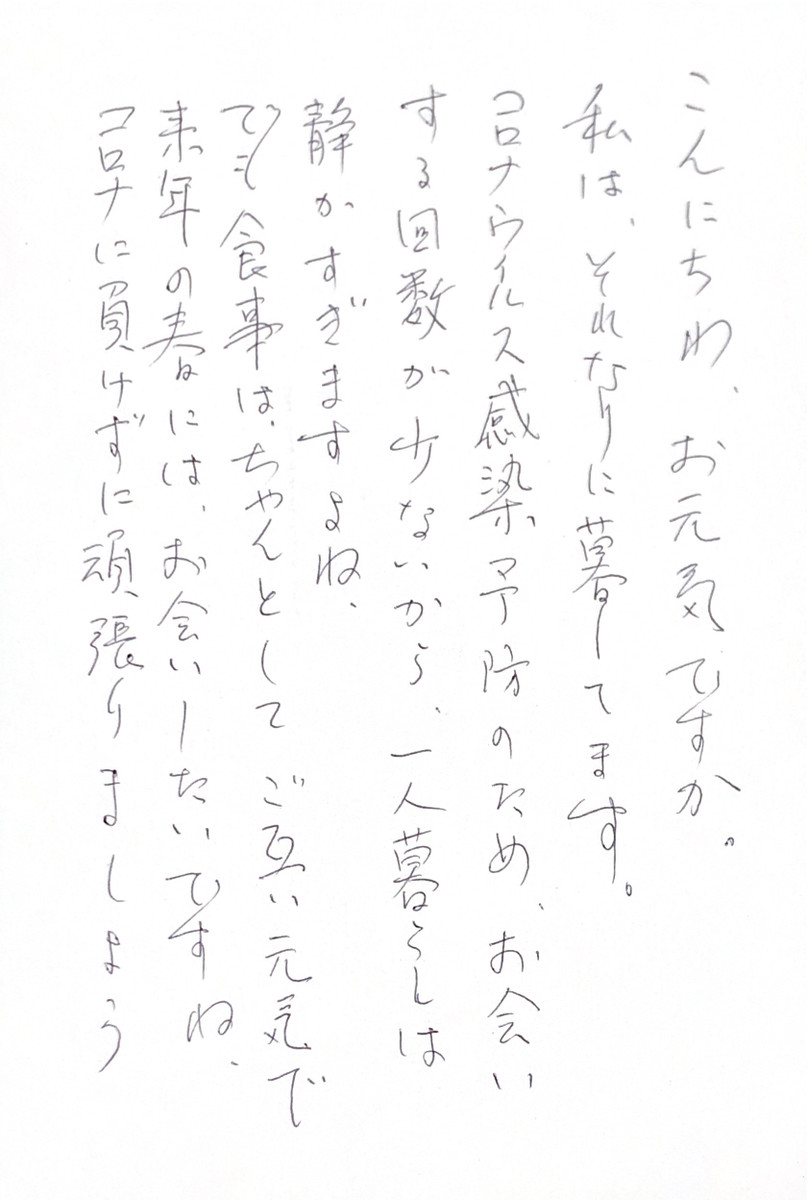 こんにちわ、お元気ですか。
私は、それなりに暮してます。
コロナウイルス感染予防のため、お会い
する回数が少ないから、一人暮らしは
静かすぎますよね、
でも食事は、ちゃんとして ご互い元気で
来年の春には、お会いしたいですね、
コロナに負けずに頑張りましょう